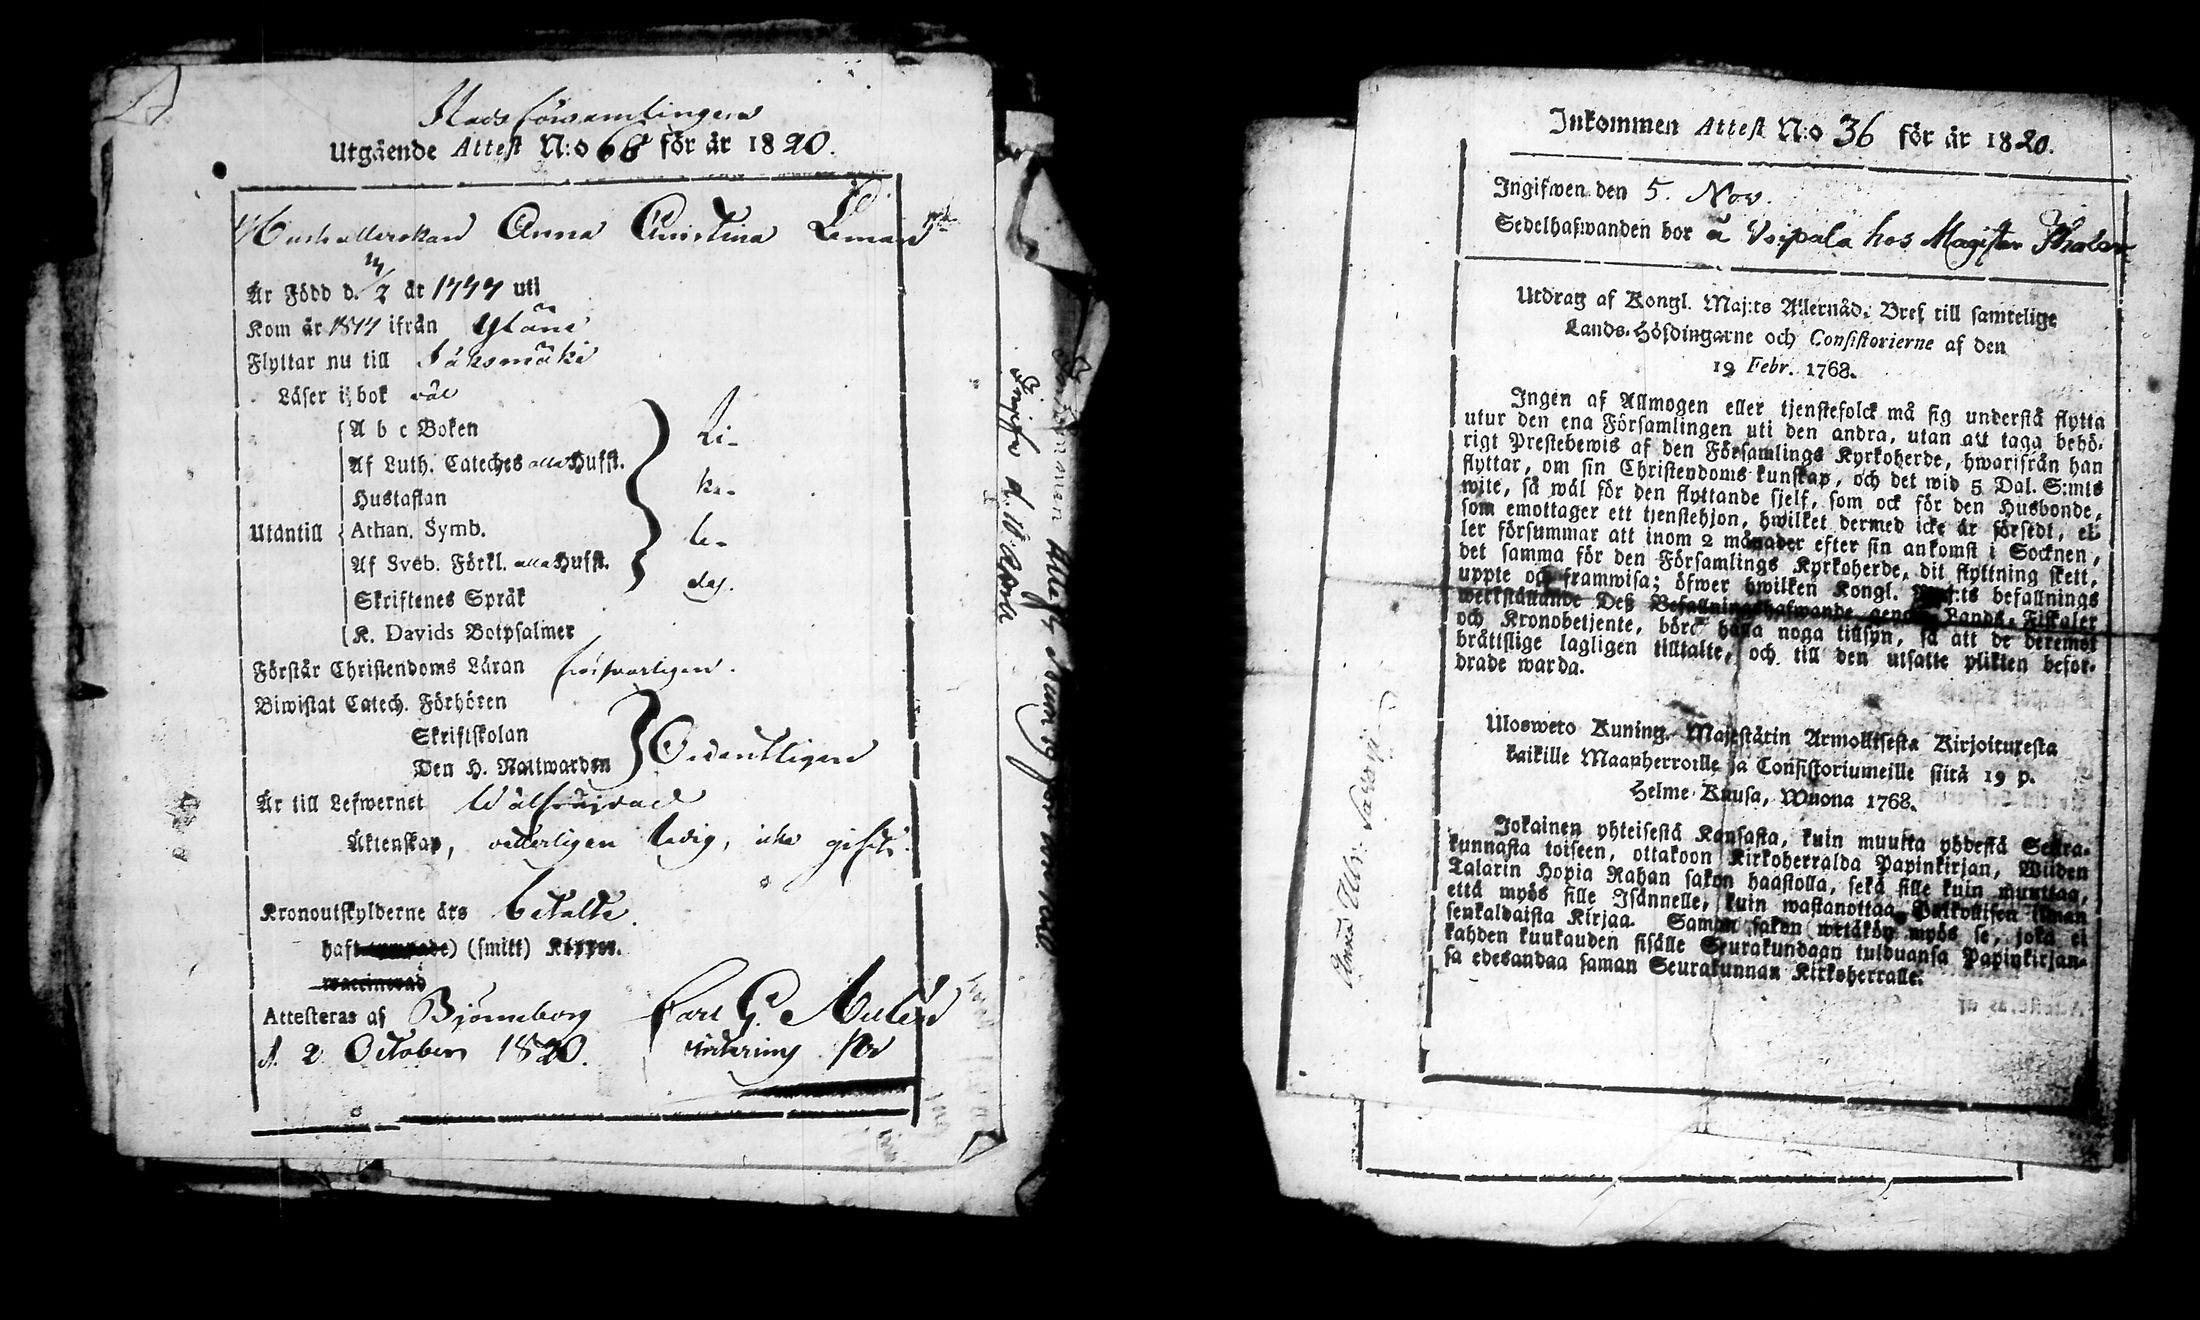 Stadsförsamlingens
Utgående Attest N:o 66 för år 1820.
Hushållerskan Anna Christina Leman
Är Född d. 14/2 år 1777 uti
Kom år 1817 ifrån Yläne
Flyttar nu till Säksmäki
Läser i bok väl
A b c Boken
Af Luth. Cateches alla Hufst.
Hustaflan
Utantill
Athan. Symb.
Af Sveb. Förkl. alla Hufst.
Skriftenes Språk
K. Davids Botpsalmer
Li-
ke-
le-
des.
Förstår Christendoms Läran försvarligen.
Biwistat Catech. Förhören
Skriftskolan
Den H. Nattwarden
Ordentligen
Är till Lefwernet Wälfrejdad
Äktenskap, vetterligen ledig, icke gift.
Kronoutskylderne äro betalte.
haft (smitt) Koppor.
Attesteras af Björneborg Carl G.
d. 2 October 1820.
Inkommen Attest N:o 36 för år 1820.
Ingifwen den 5. Nov.
Sedelhafwanden bor å Voipala hos Magister Tholen
Utdrag af Kongl. Maj:ts Allernåd. Bref till samtelige
Lands-Höfdingarne och Consistorierne af den
19 Febr. 1768.
Ingen af Allmogen eller tjenstefolck må sig understå flytta
utur den ena Församlingen uti den andra, utan att taga behö-
rigt Prestebewis af den Församlings Kyrkoherde, hwarifrån han
flyttar, om sin Christendoms kunskap, och det wid 5 Dal. S:mts
wite, så wäl för den flyttande sjelf, som ock för den Husbonde,
som emottager ett tjenstehjon, hwilket dermed icke är försedt, el-
ler försummar att inom 2 månader efter sin ankomst i Socknen,
det samma för den Församlings Kyrkoherde, dit flyttning skett,
uppte och framwisa; öfwer hwilken Kongl. Maj:ts befallnings
werkställande Deß Befallningshafwande genom Lands-Fiskaler
och Kronobetjente, böra hålla noga tillsyn, så att de deremot
brättslige lagligen tilltalte, och till den utsatte plikten befor-
drade warda.
Ulosweto Kuning. Majestätin Armollisesta Kirjoituxesta
kaikille Maanherroille ja Consistoriumeille siitä 19 p.
Helme Kuusa, Wuona 1768.
Jokainen yhteisestä Kansasta, kuin muutta yhdestä Seura-
kunnasta toiseen, ottakoon Kirkoherralda Papinkirjan, Wiiden
Talarin Hopia Rahan sakon haastolla, sekä sille kuin muuttaa,
että myös sille Isännelle, kuin wastanottaa Palkollisen ilman
senkaldaista Kirjaa. Saman sakon wetäköön myös se, joka ei
kahden kuukauden sisälle Seurakundaan tulduansa Papinkirjan-
sa edesandaa saman Seurakunnan Kirkoherralle.